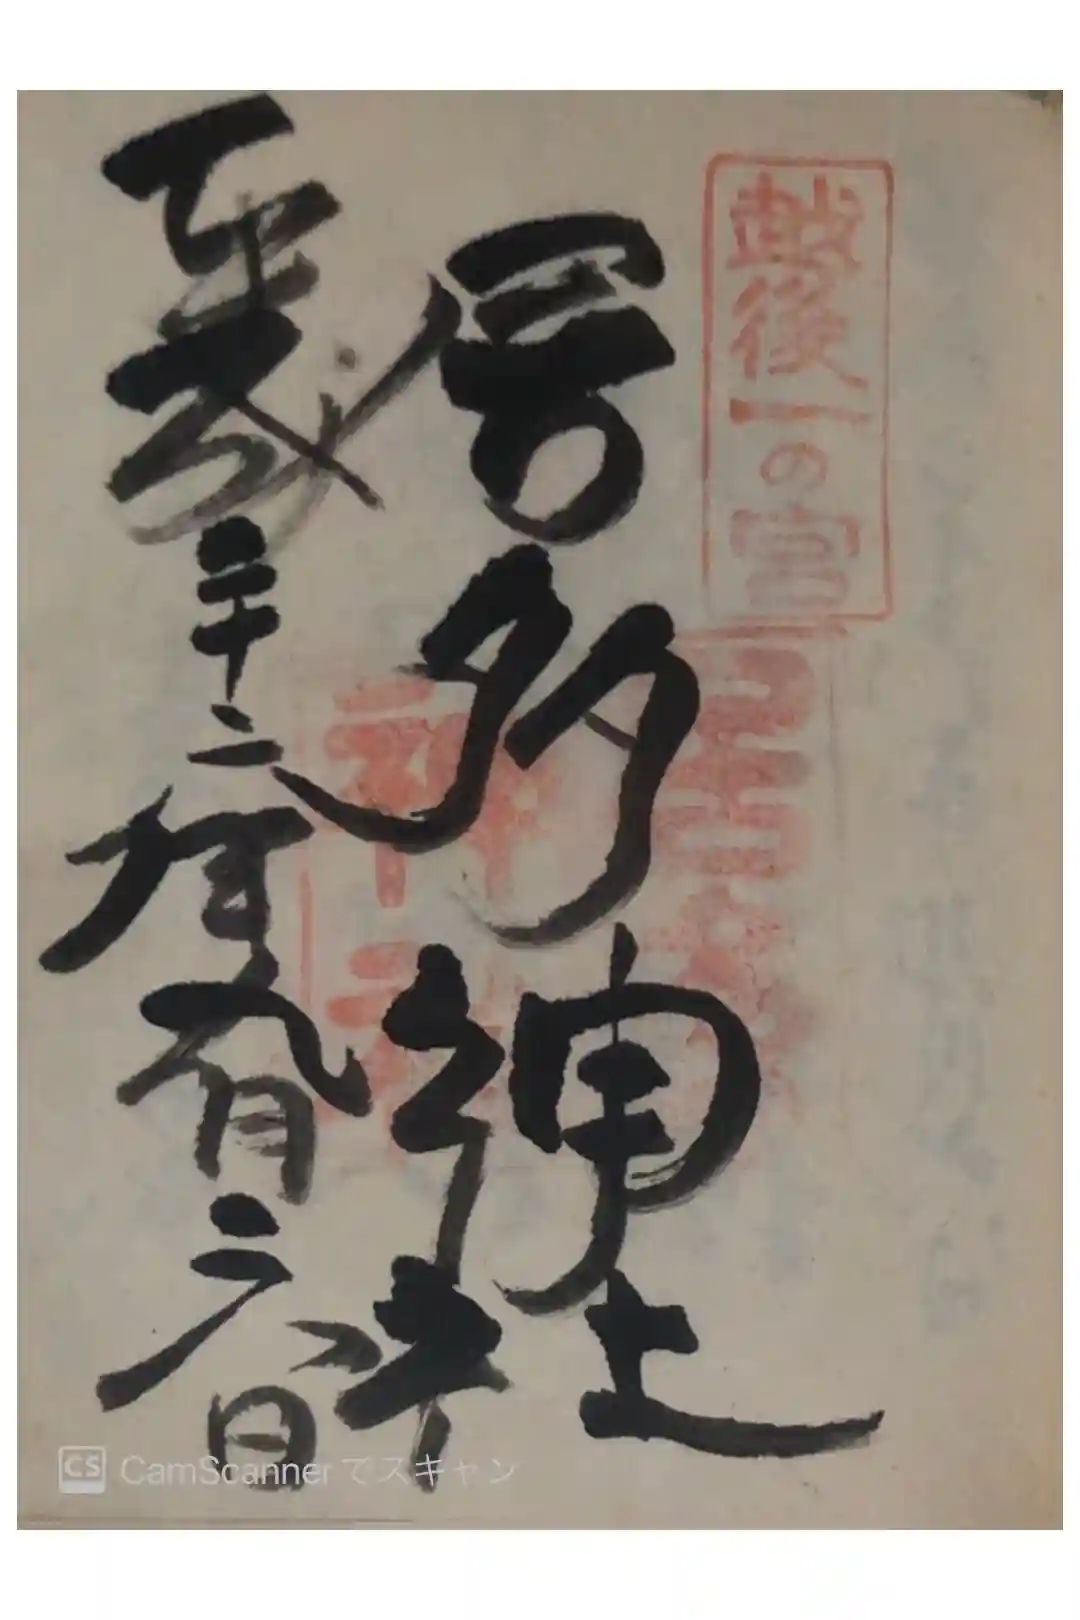 越後一の宮
居多神社
居多神社
平成二十二年九月六日
CamScannerでスキャン